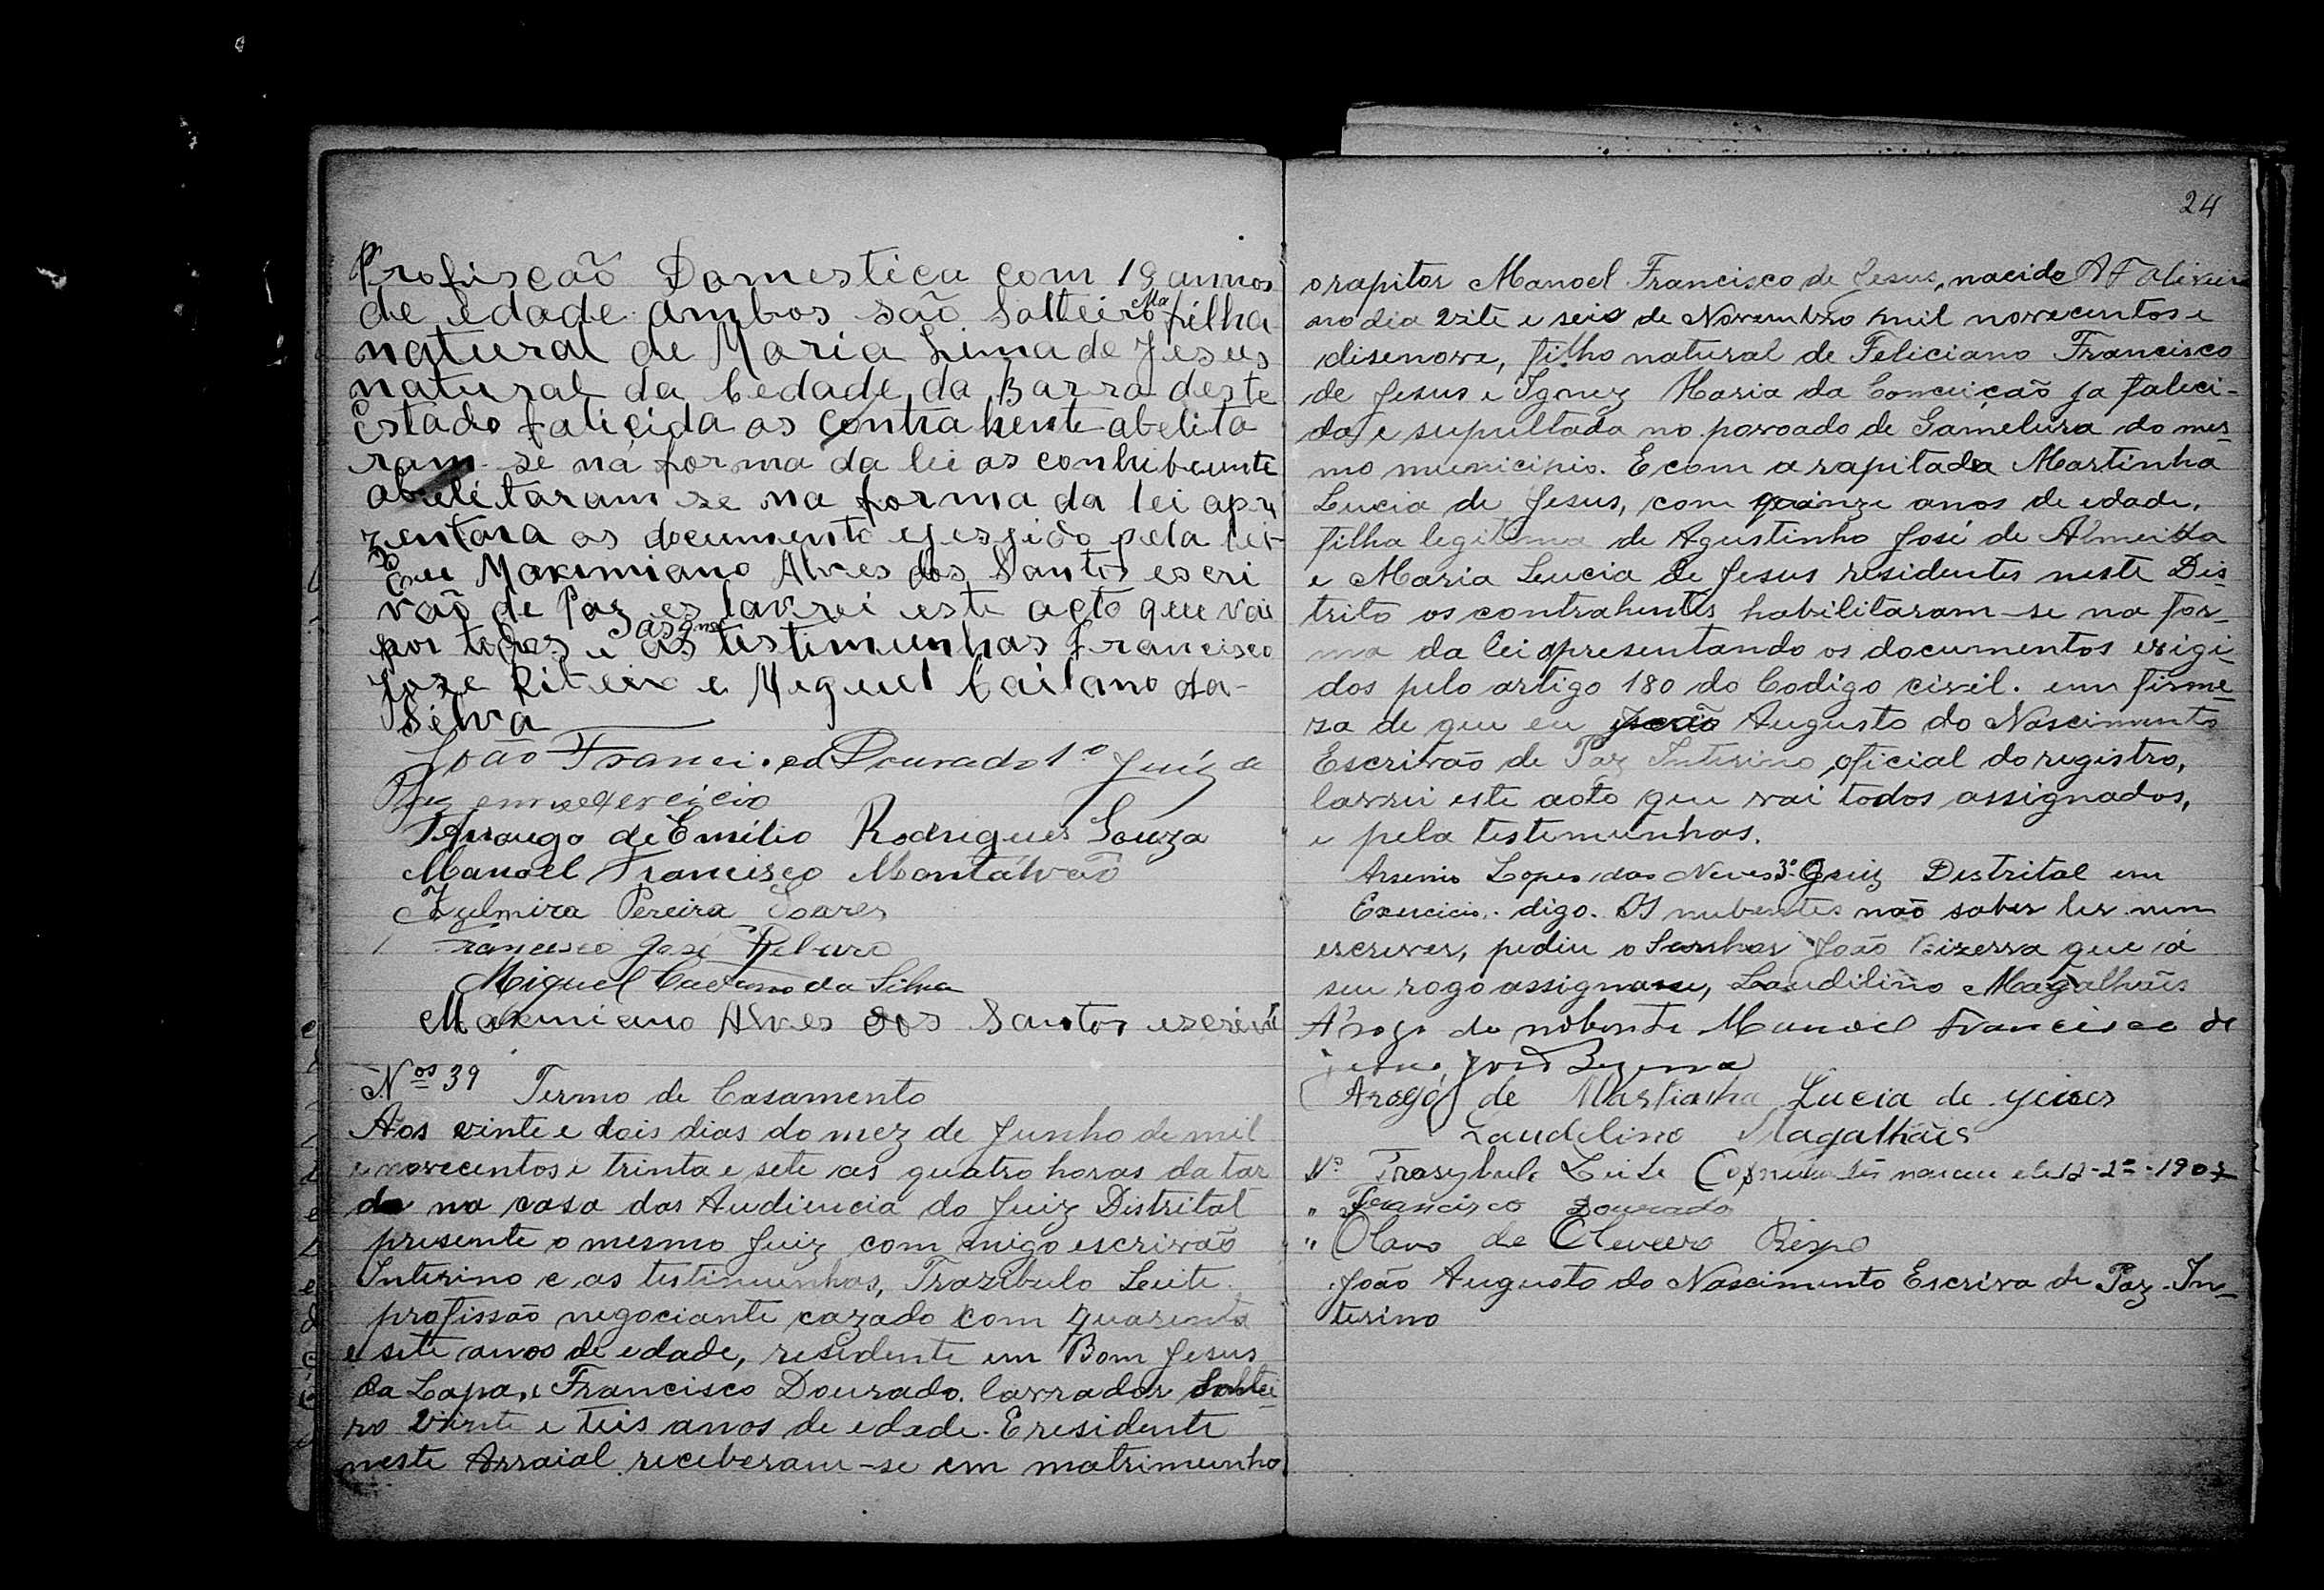 Profisção Domestica com 19 annos
de edade ambos são Solteiro Ma filha
natural de Maria Lima de Jesus
natural da Cedade da Barra deste
Estado falicida os contrahente abelita
ram-se na forma da lei os
abelitaram se na forma da lei apre
zentara os documento pela lei
Eu Maximiano Alves dos Santos escri
vão de Paz es lavrei este acto que vai
por todos e as testimunhas Francisco
Joze Ribeiro e Miguel Caitano da-
Silva
João Francisco Dourado 1º Juiz de
Paz em exercicio
Arrougo de Emílio Rodrigues Souza
Manoel Francisco Montalvão
Zulmira Pereira Soares
Francisco José Ribeiro
Miguel Caetano da Silva
Maximiano Alves dos Santos escrivã
Nos 39 Termo de Casamento
Aos vinte e dois dias do mez de Junho de mil
e novecentos e trinta e sete as quatro horas da tar
de na casa das Audiencia do Juiz Distrital
presente o mesmo Juiz com migo escrivão
Interino e as testimunhas, Trazibulo Leite
profissão negociante cazado com quarenta
e sete anos de edade, residente em Bom Jesus
da Lapa, e Francisco Dourado. lavrador soltei-
ro vinte e teis anos de edade. E residente
neste Arraial receberam-se em matrimunho
24
o rapitor Manoel Francisco de Jesus, nacido
no dia vite e seis de Novembro mil novecentos e
disenove, filho natural de Feliciano Francisco
de Jesus e Ignez Maria da Conceição ja faleci-
da e supultada no povoado de Gamelura do mes-
mo municipio. E com a rapitada Martinha
Lucia de Jesus, com quinze anos de edade.
filha legitima de Agustinho José de Almeida
e Maria Lucia de Jesus residentes neste Dis-
trito os contrahentes habilitaram-se na for-
ma da lei apresentando os documentos exigi-
dos pelo artigo 180 do Codigo civil. em firme-
za de que eu João Augusto do Nascimento
Escrivão de Paz Interino, oficial do registro,
lavrei este acto que vai todos assignados,
e pela testemunhas.
Arsenio Lopes das Neves 3º Juiz Destrital em
Exercicio. digo. Os nubentes não saber ler nem
escrever, pediu o Senhor João Bizerra que á
seu rogo assignasse, Laudilino Magalhães
A'rogo do nobente Manoel Francisco de
Jesus, João Bezerra
Arogo de Martinha Lucia de Jesus
Laudelino Magalhães
Nº Trasybulo Leite nasceu ele 12-2º-1907
" Francisco Dourado
" Olavo de Oliveira Bispo
João Augusto do Nascimento Escriva de Paz-In-
terino